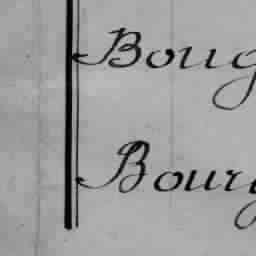 Boug
Bourg